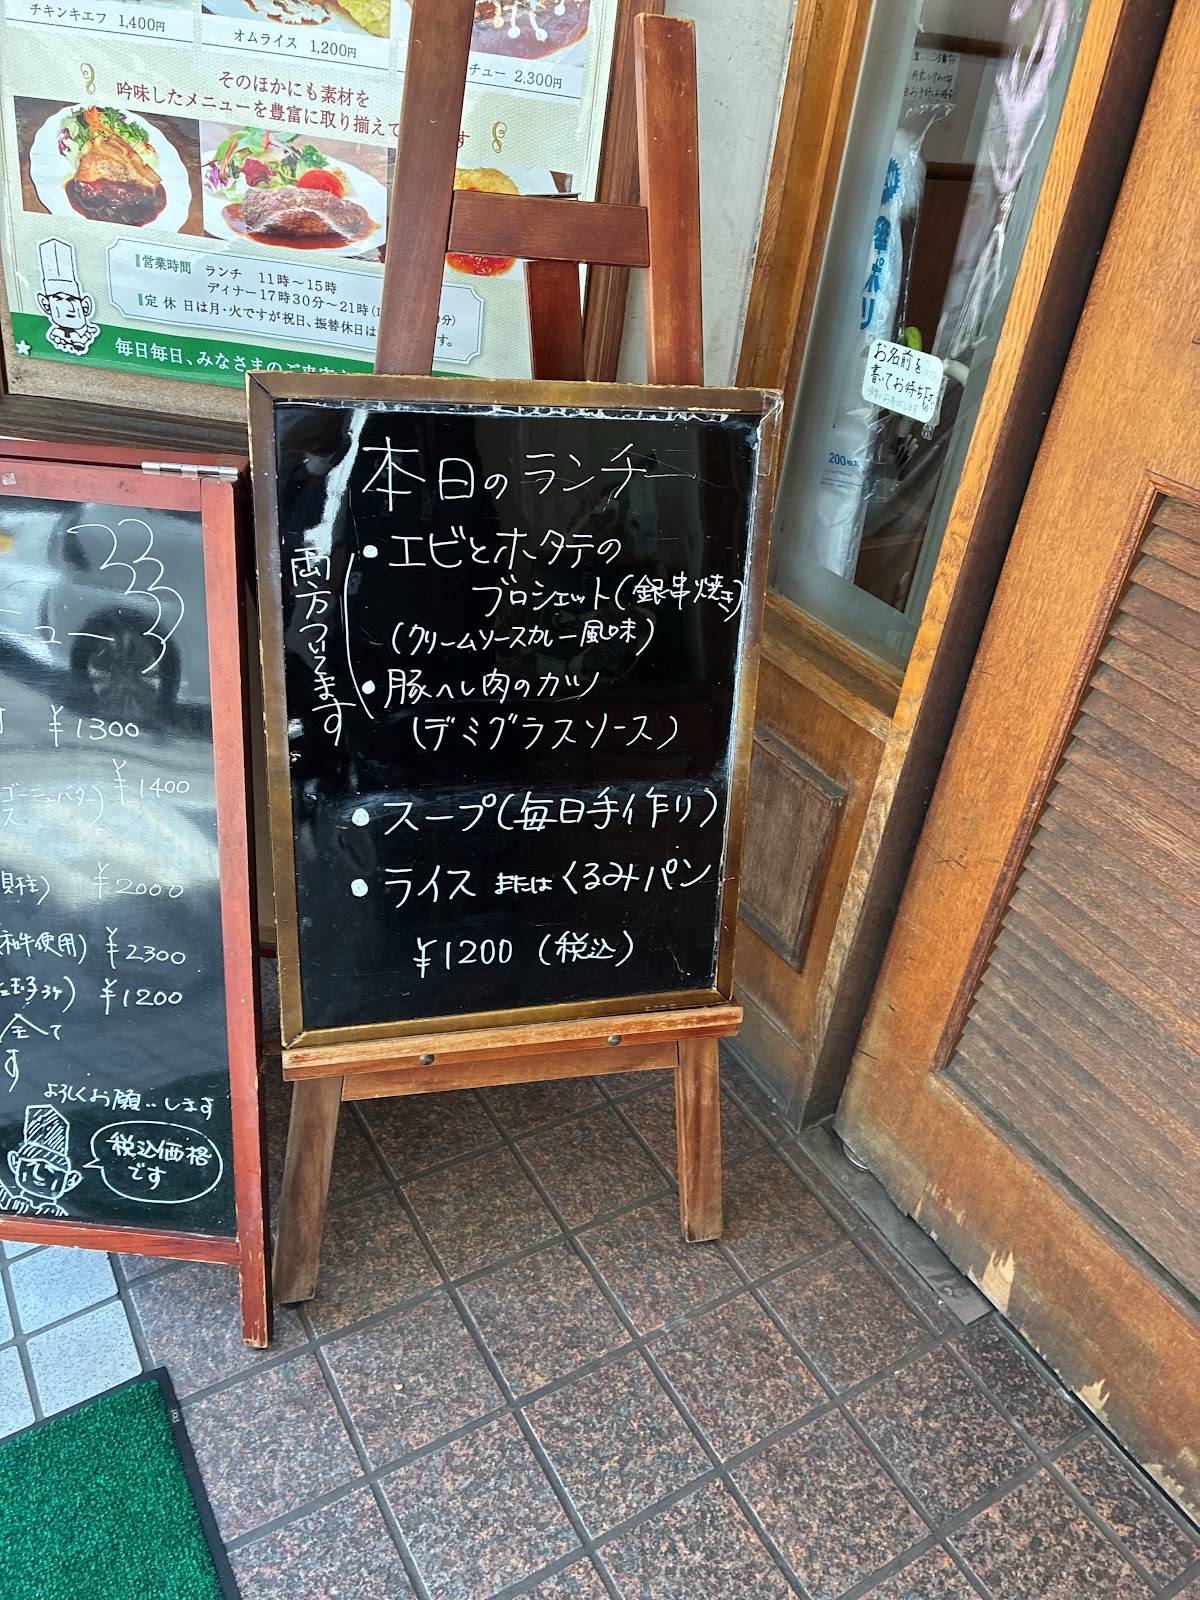 チキンキエフ 1,400円
オムライス 1,200円
チュー 2,300円
そのほかにも素材を
吟味したメニューを豊富に取り揃えて
す
営業時間 ランチ 11時～15時
ディナー17時30分～21時
定休日は月・火ですが祝日、振替休日は
す。
毎日毎日、みなさまのご来店
本日のランチ
両方ついてます
・エビとホタテの
ブロシェット(銀串焼き)
(クリームソースカレー風味)
・豚ヘレ肉のカツ
(デミグラスソース)
・スープ(毎日手作り)
・ライス または くるみパン
¥1200 (税込)
ニュー
¥1300
¥1400
ゴーニュバター)
ス
貝柱) ¥2000
和牛使用) ¥2300
玉子3ケ) ¥1200
全て
す
よろしくお願いします
税込価格
です
お名前を
書いてお待ち下さい
傘ポリ
200枚